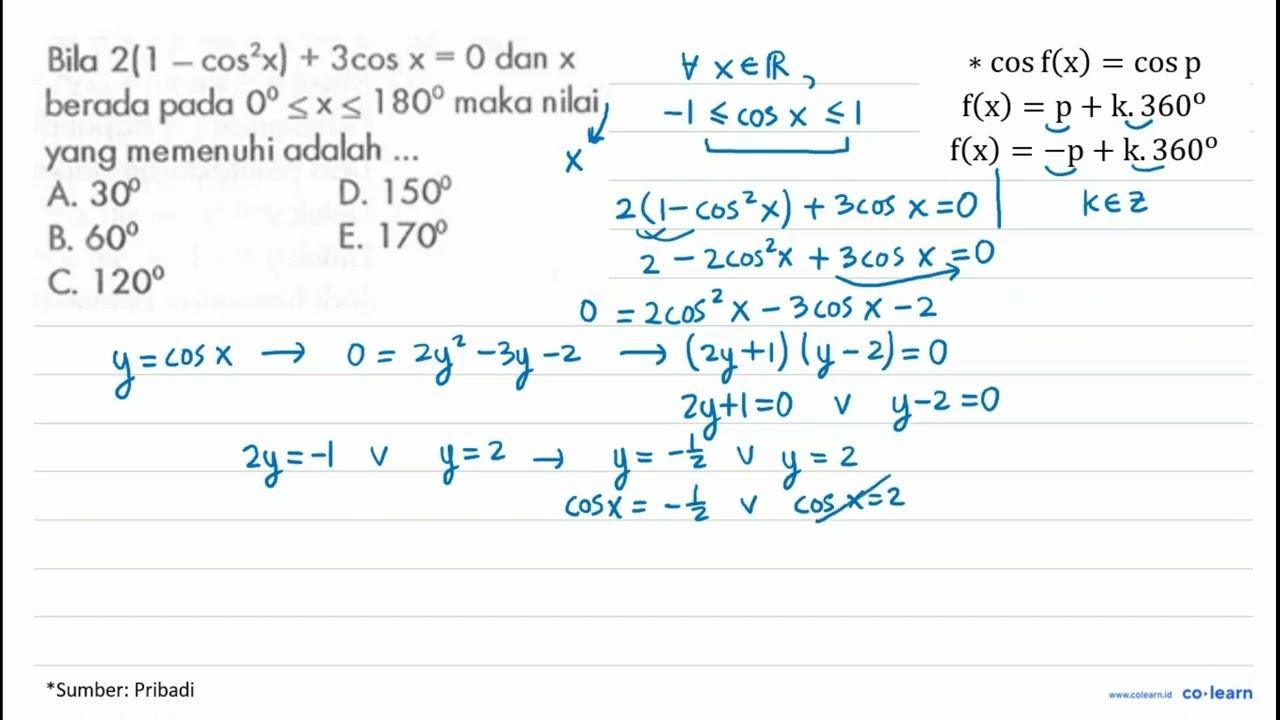 Bila 2(1 – cos²x) + 3cos x = 0 dan x
berada pada 0⁰ ≤ x ≤ 180⁰ maka nilai
x
yang memenuhi adalah ...
A. 30⁰
B. 60⁰
C. 120⁰
D. 150⁰
E. 170⁰
∀ x ∈ ℝ,
-1 ≤ cos x ≤ 1
* cos f(x) = cos p
f(x) = p + k. 360⁰
f(x) = −p + k. 360⁰
k ∈ Z
2(1 - cos²x) + 3cos x = 0
2 - 2cos²x + 3cos x = 0
0 = 2cos²x - 3cos x - 2
y = cos x → 0 = 2y² - 3y - 2 → (2y+1)(y-2) = 0
2y+1=0 ∨ y-2=0
2y=-1 ∨ y=2 → y = -1/2 ∨ y = 2
cos x = -1/2 ∨ cos x = 2
*Sumber: Pribadi
www.colearn.id co·learn